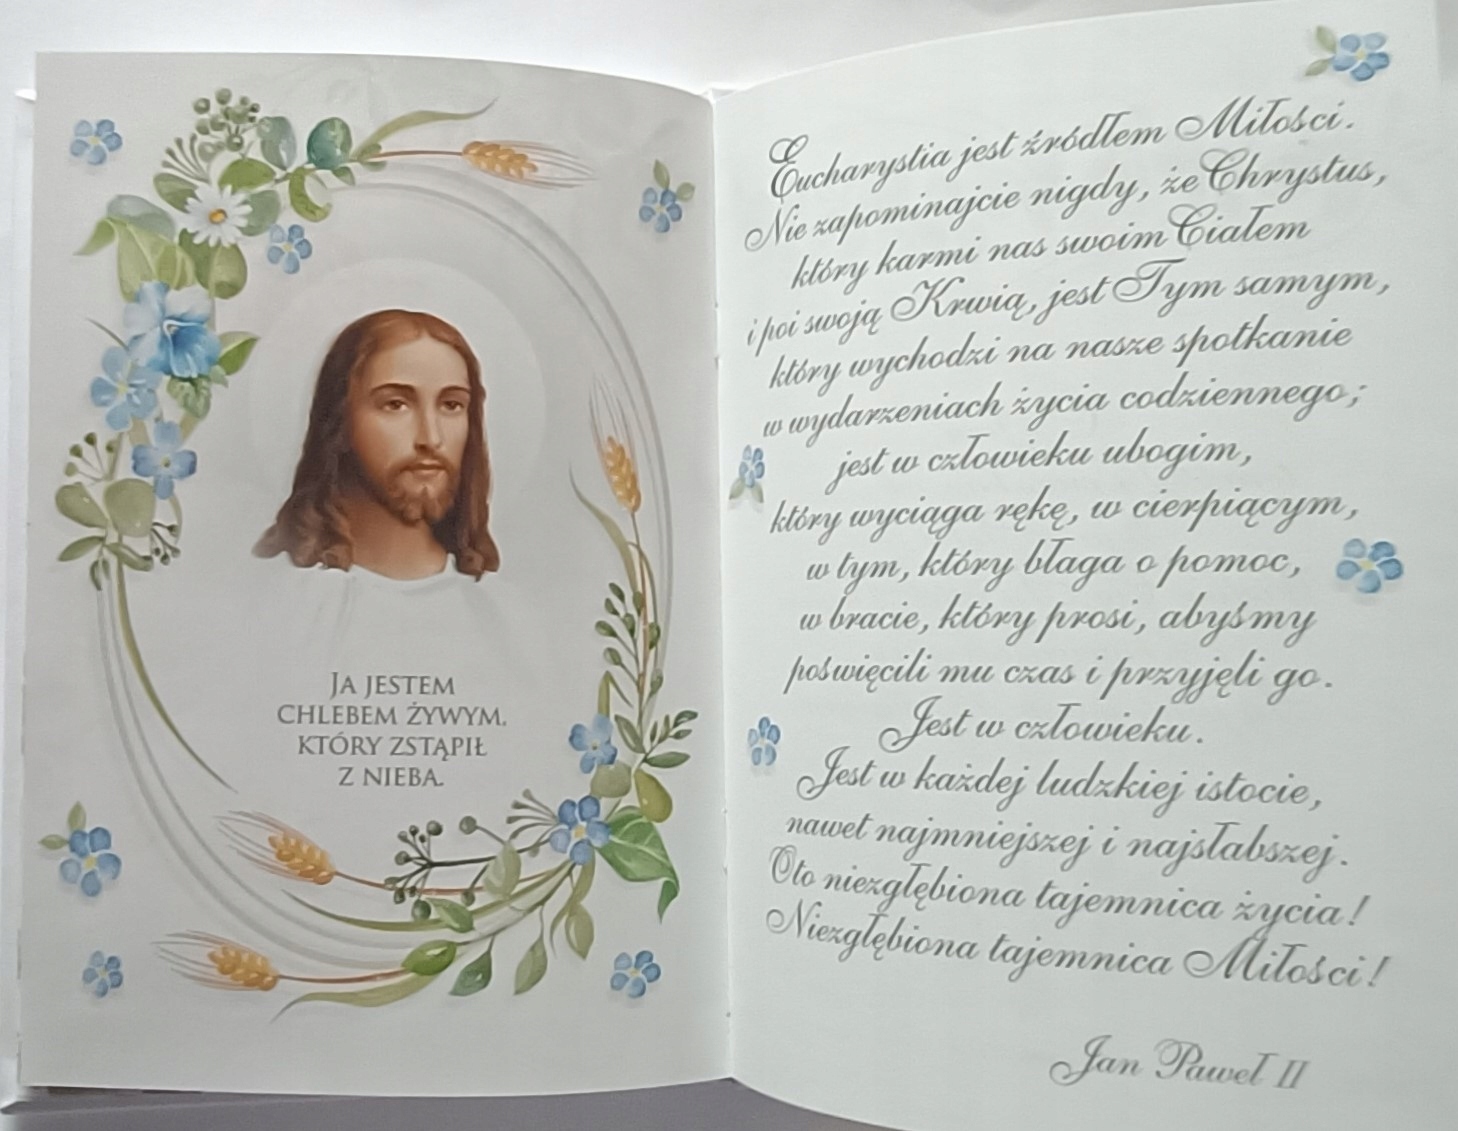 JA JESTEM
CHLEBEM ŻYWYM,
KTÓRY ZSTĄPIŁ
Z NIEBA.
Eucharystia jest źródłem Miłości.
Nie zapominajcie nigdy, że Chrystus,
który karmi nas swoim Ciałem
i poi swoją Krwią, jest Tym samym,
który wychodzi na nasze spotkanie
w wydarzeniach życia codziennego;
jest w człowieku ubogim,
który wyciąga rękę, w cierpiącym,
w tym, który błaga o pomoc,
w bracie, który prosi, abyśmy
poświęcili mu czas i przyjęli go.
Jest w człowieku.
Jest w każdej ludzkiej istocie,
nawet najmniejszej i najsłabszej.
Oto niezgłębiona tajemnica życia!
Niezgłębiona tajemnica Miłości!
Jan Paweł II